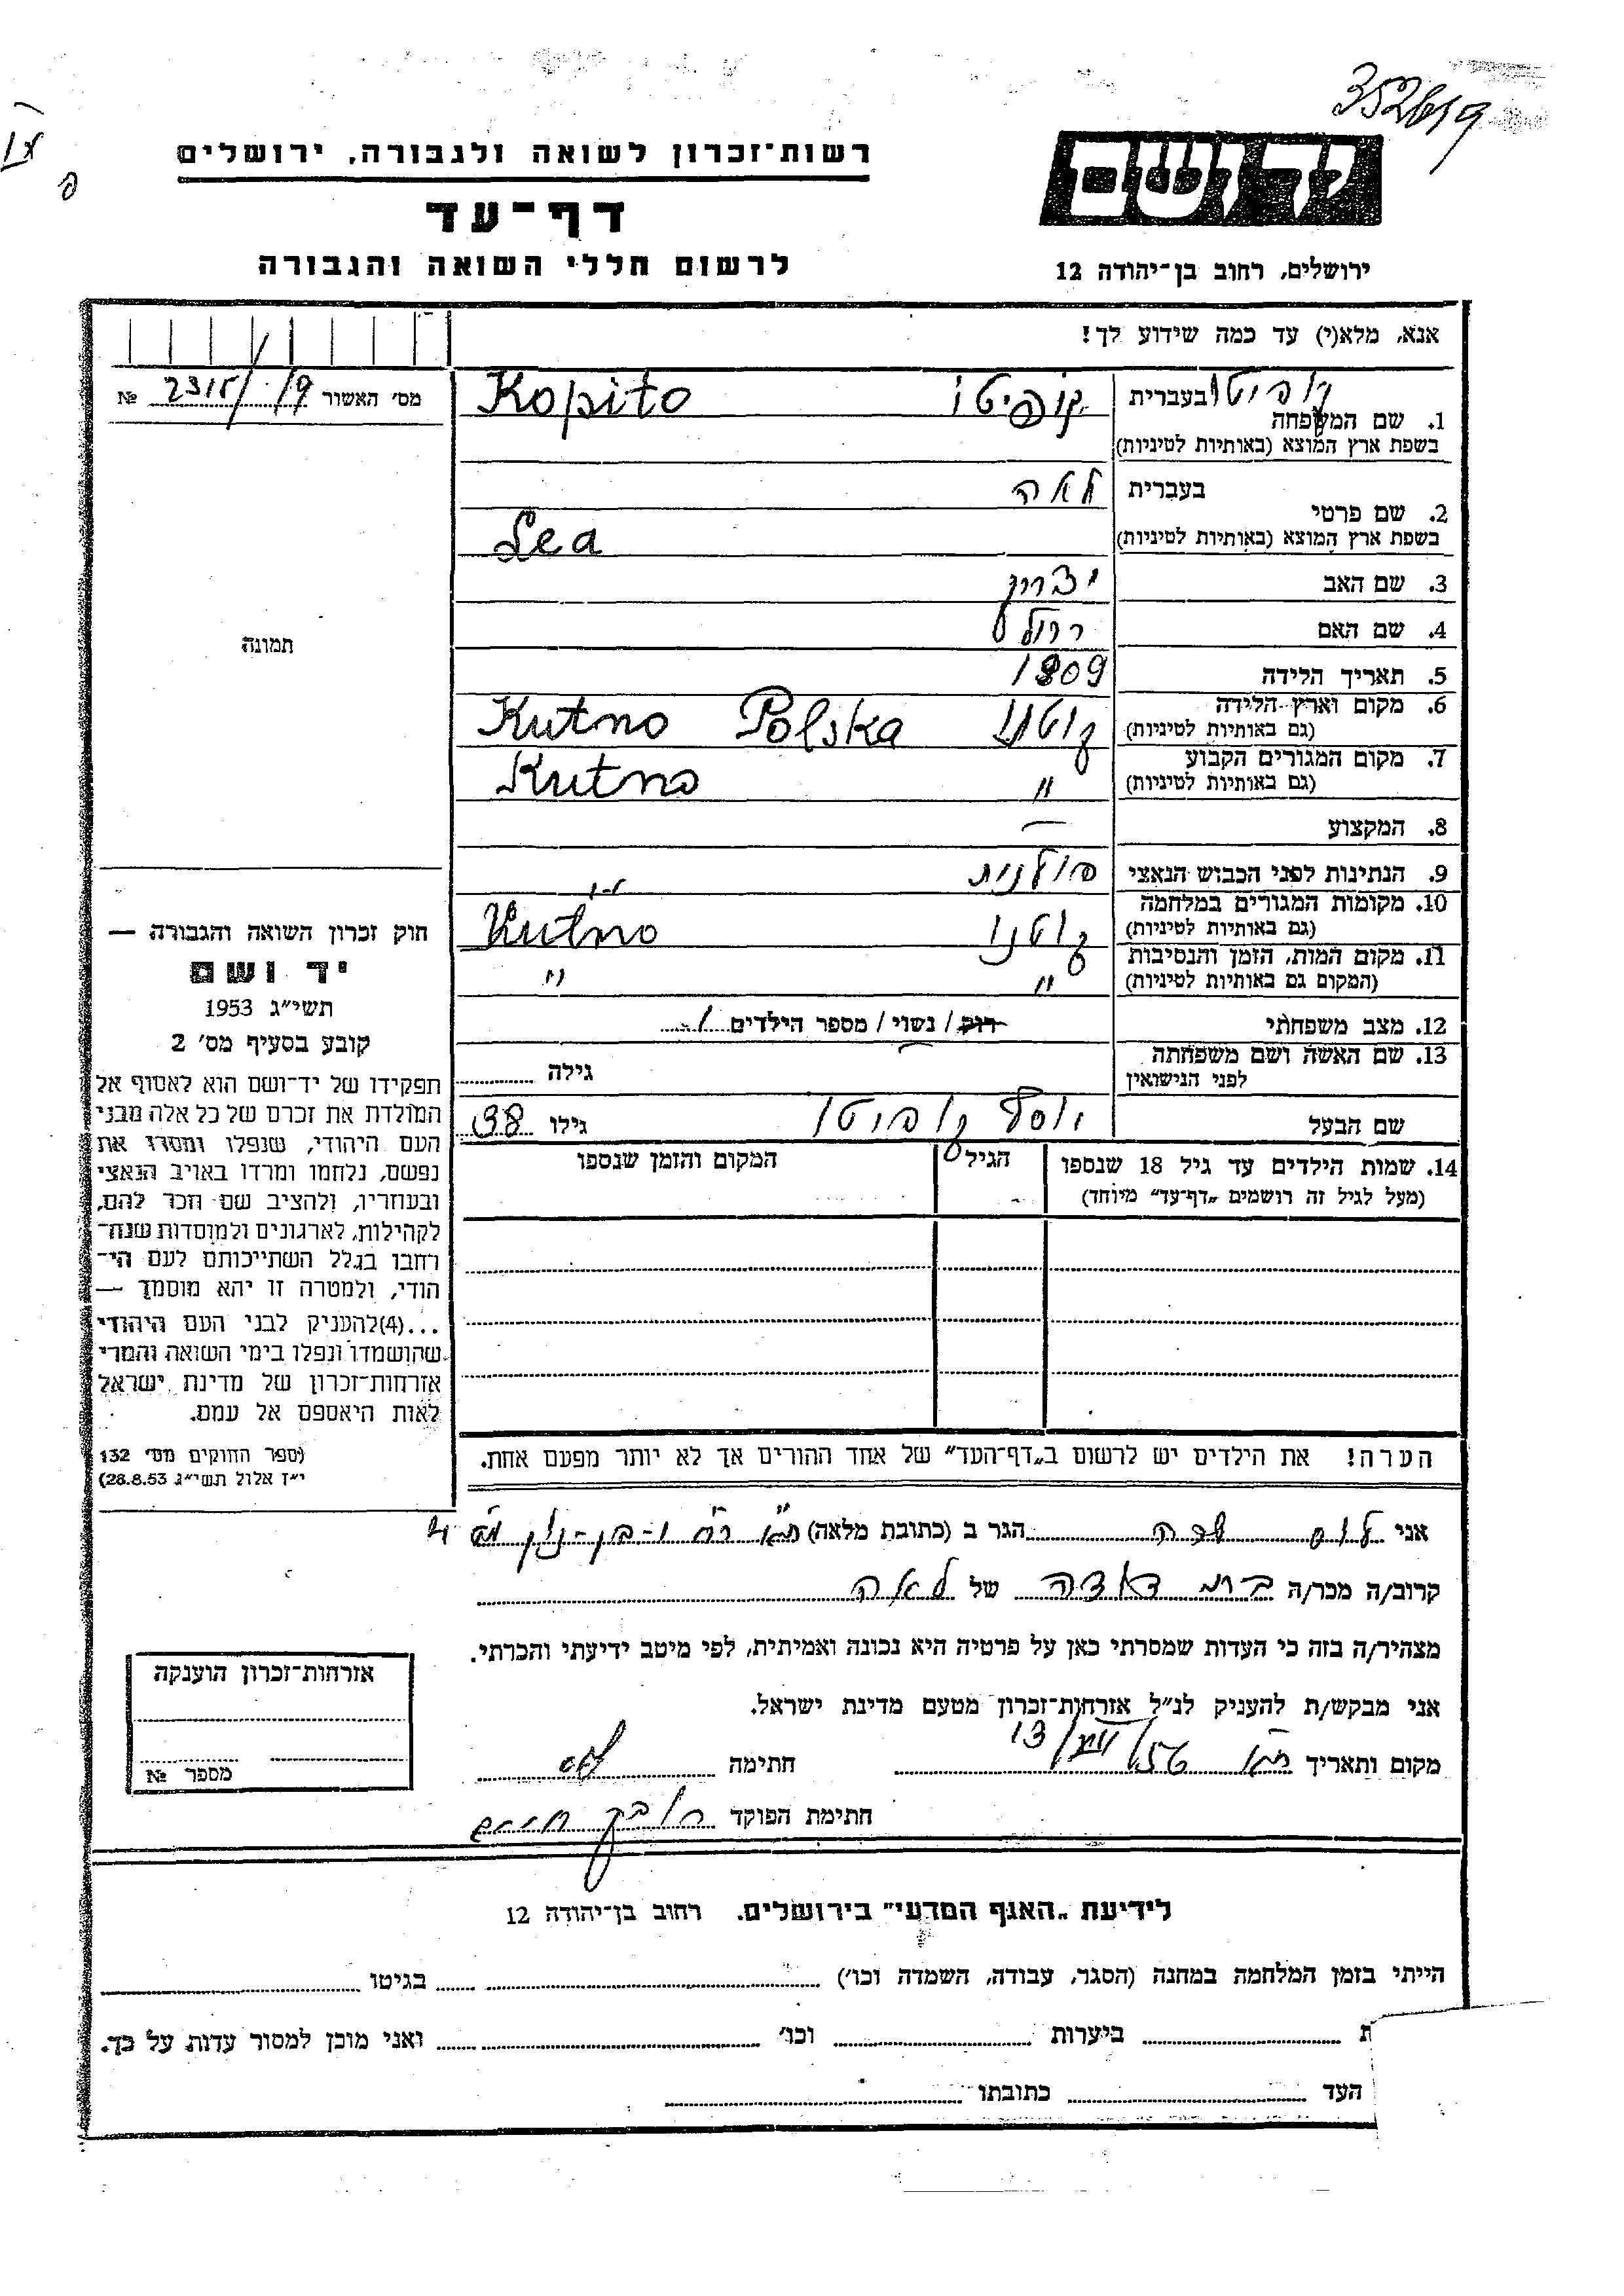 352619
רשות־זכרון לשואה ולגבורה, ירושלים
דף־עד
לרשום חללי השואה והגבורה
ידושם
ירושלים, רחוב בן־יהודה 12
אנא, מלא(י) עד כמה שידוע לך!
מס׳ האשור № 2315/19
1. שם המשפחה
בעברית קופיטו קופיטו
בשפת ארץ המוצא (באותיות לטיניות) Kopito
2. שם פרטי
בעברית לאה
בשפת ארץ המוצא (באותיות לטיניות) Lea
3. שם האב
4. שם האם
5. תאריך הלידה 1909
6. מקום וארץ הלידה קוטנו Kutno Polska
(גם באותיות לטיניות)
7. מקום המגורים הקבוע " Kutno
(גם באותיות לטיניות)
8. המקצוע —
9. הנתינות לפני הכבוש הנאצי פולנית
10. מקומות המגורים במלחמה קוטנו Kutno
(גם באותיות לטיניות)
11. מקום המות, הזמן והנסיבות " "
(המקום גם באותיות לטיניות)
12. מצב משפחתי רווק / נשוי / מספר הילדים
13. שם האשה ושם משפחתה — גילה
לפני הנישואין
שם הבעל יוסף קופיטו גילו 38
14. שמות הילדים עד גיל 18 שנספו הגיל המקום והזמן שנספו
(מעל לגיל זה רושמים „דף־עד״ מיוחד)
הערה! את הילדים יש לרשום ב„דף־העד״ של אחד ההורים אך לא יותר מפעם אחת.
תמונה
חוק זכרון השואה והגבורה —
יד ושם
תשי״ג 1953
קובע בסעיף מס׳ 2
תפקידו של יד־ושם הוא לאסוף אל
המולדת את זכרם של כל אלה מבני
העם היהודי, שנפלו ומסרו את
נפשם, נלחמו ומרדו באויב הנאצי
ובעוזריו, ולהציב שם וזכר להם,
לקהילות, לארגונים ולמוסדות שנח־
רחבו בגלל השתייכותם לעם הי־
הודי, ולמטרה זו יהא מוסמך —
...(4)להעניק לבני העם היהודי
שהושמדו ונפלו בימי השואה והמרי
אזרחות־זכרון של מדינת ישראל
לאות היאספם אל עמם.
(ספר החוקים מס׳ 132
י״ז אלול תשי״ג 28.8.53)
אני הגר ב (כתובת מלאה)
קרוב/ה מכר/ה בת דודה של לאה
מצהיר/ה בזה כי העדות שמסרתי כאן על פרטיה היא נכונה ואמיתית, לפי מיטב ידיעתי והכרתי.
אני מבקש/ת להעניק לנ״ל אזרחות־זכרון מטעם מדינת ישראל.
מקום ותאריך חתימה
חתימת הפוקד
אזרחות־זכרון הוענקה
מספר №
לידיעת „האגף המדעי״ בירושלים. רחוב בן־יהודה 12
הייתי בזמן המלחמה במחנה (הסגר, עבודה, השמדה וכו׳) בגיטו
ת ביערות וכו׳ ואני מוכן למסור עדות על כך.
העד כתובתו